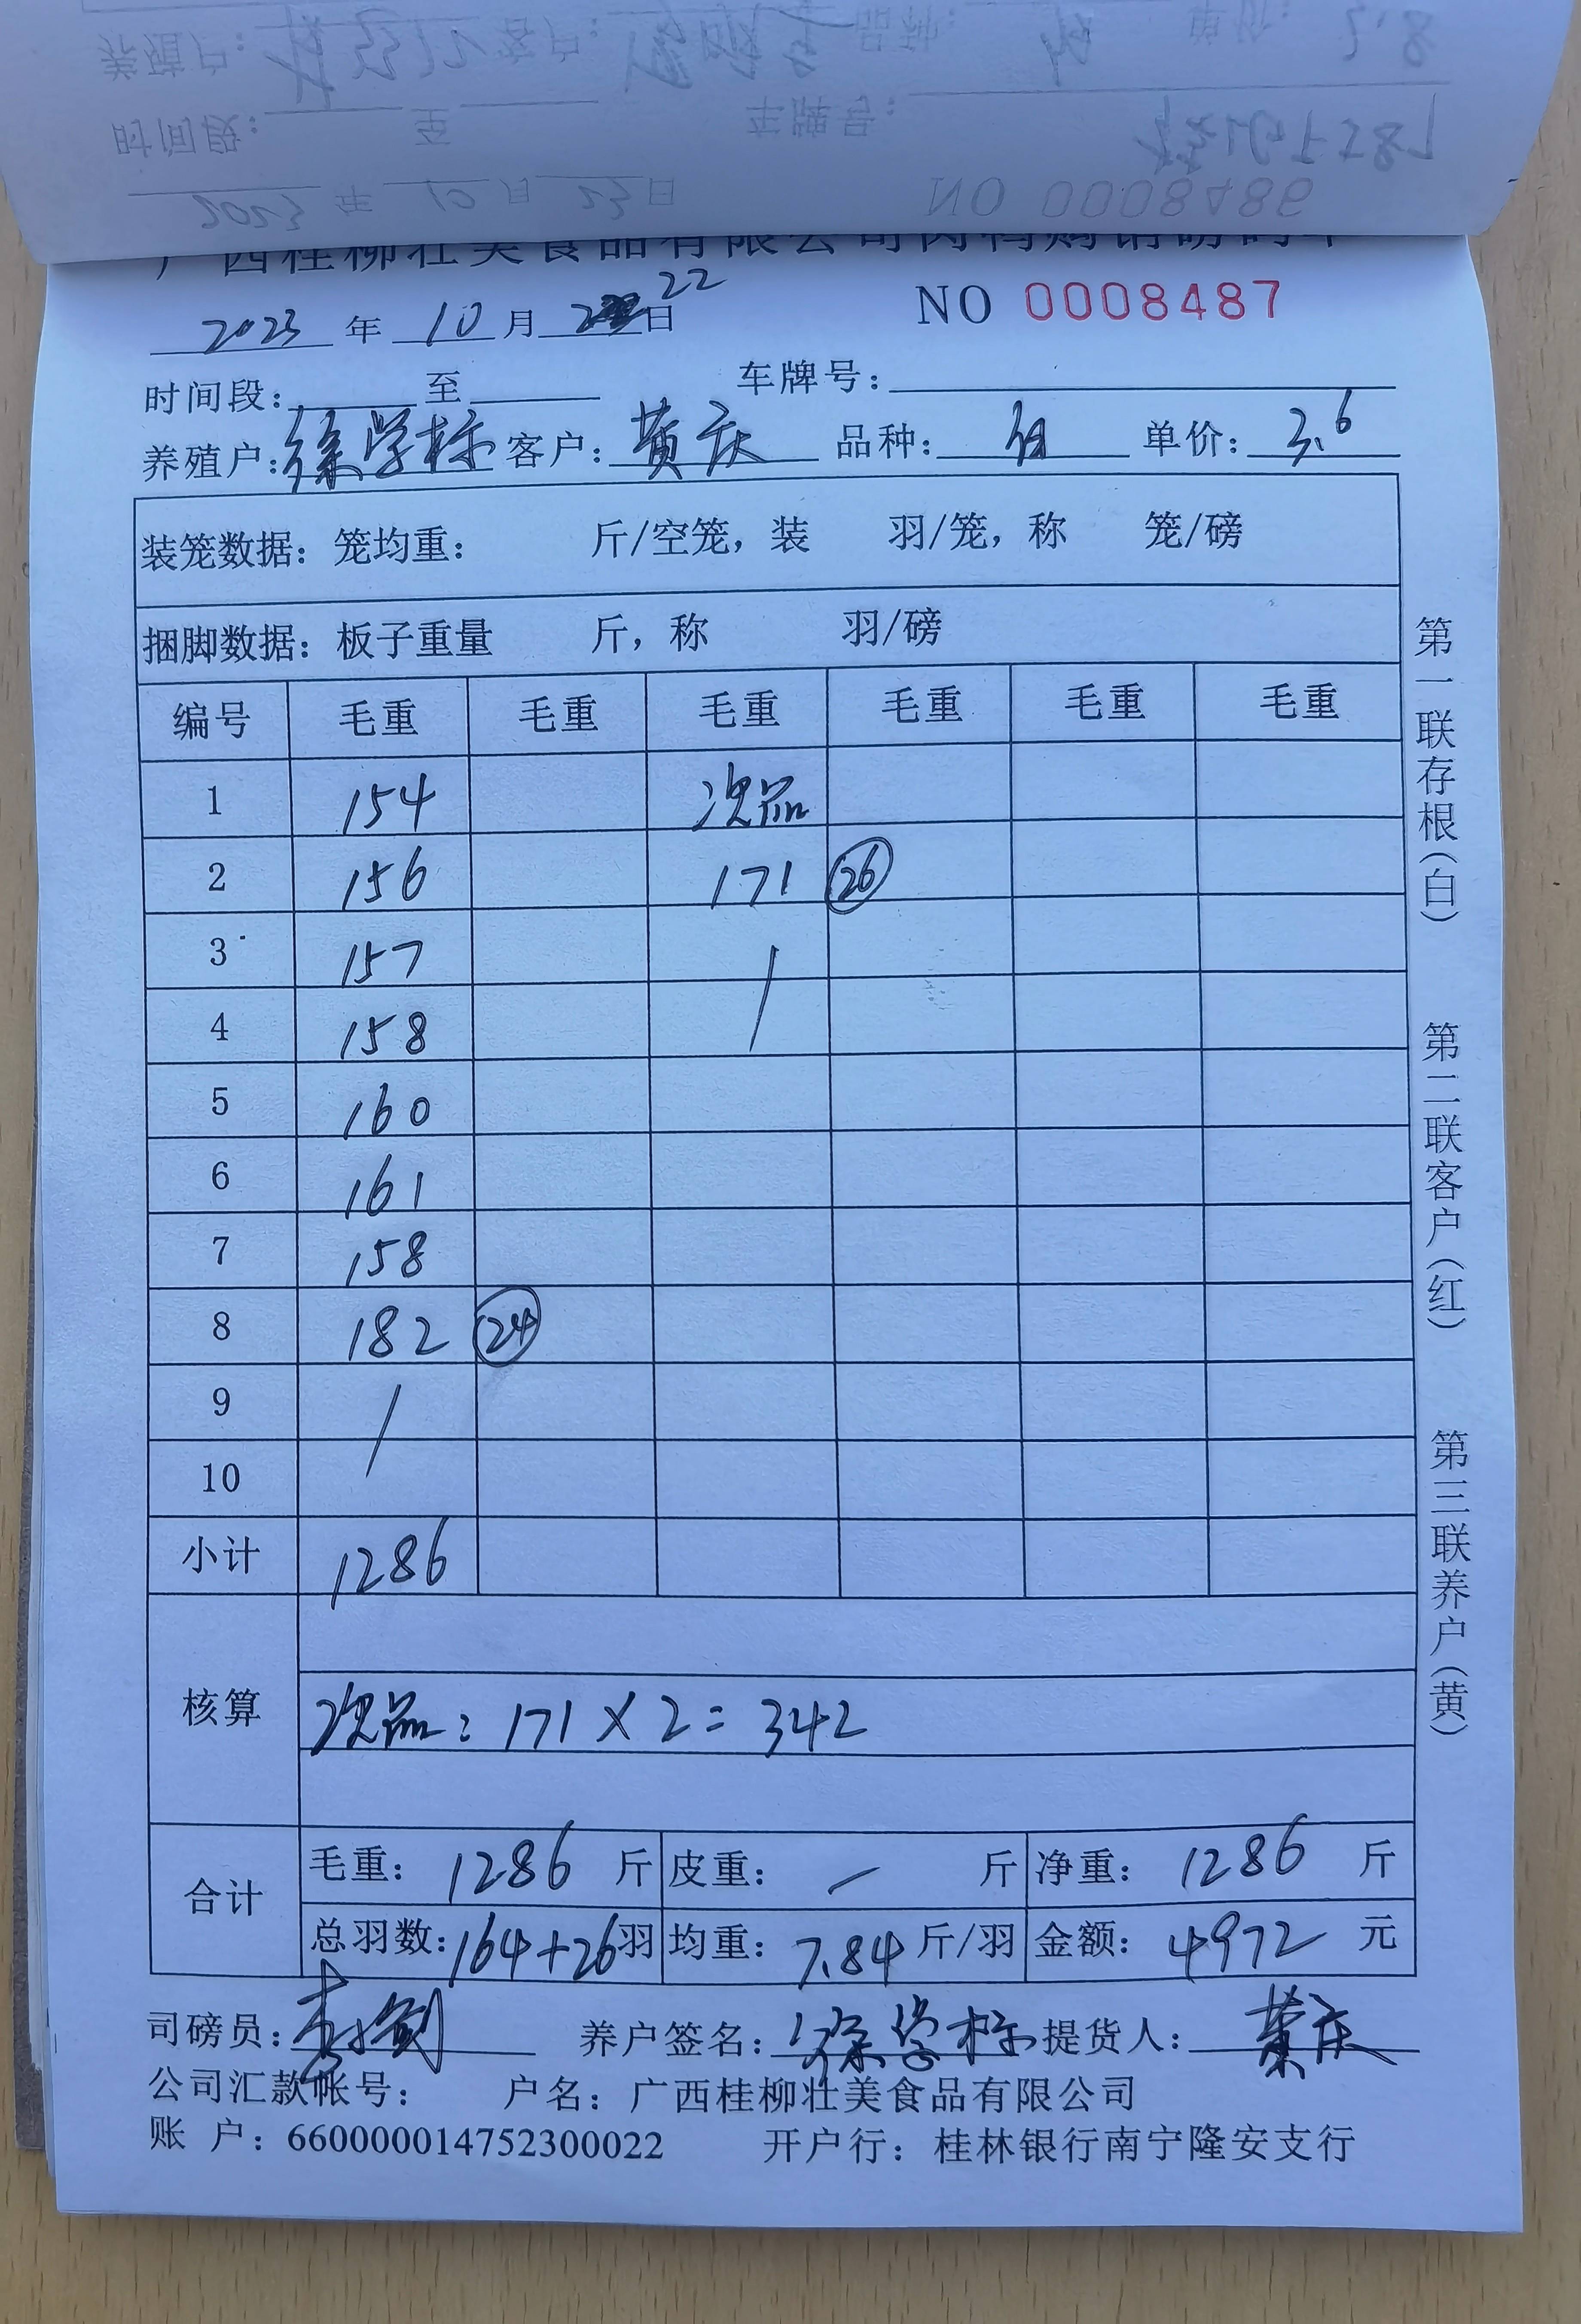 2023 年 10 月 23 日
NO 0008486
时间段: 至 车牌号:
养殖户: 客户: 品种: 单价: 3.8
广西桂柳壮美食品有限公司肉鸭购销磅码单
2023 年 10 月 日 22 NO 0008487
时间段: 至 车牌号:
养殖户: 徐学标 客户: 黄庆 品种: 单价: 3.6
装笼数据: 笼均重: 斤/空笼, 装 羽/笼, 称 笼/磅
捆脚数据: 板子重量 斤, 称 羽/磅
编号 毛重 毛重 毛重 毛重 毛重 毛重
1 154 次品
2 156 171 26
3 157 /
4 158
5 160
6 161
7 158
8 182 24
9 /
10
小计 1286
核算 次品: 171 × 2 = 342
合计 毛重: 1286 斤 皮重: — 斤 净重: 1286 斤
总羽数: 164+26 羽 均重: 7.84 斤/羽 金额: 4972 元
司磅员: 养户签名: 徐学标 提货人: 黄庆
公司汇款帐号: 户名: 广西桂柳壮美食品有限公司
账 户: 660000014752300022 开户行: 桂林银行南宁隆安支行
第一联存根(白) 第二联客户(红) 第三联养户(黄)